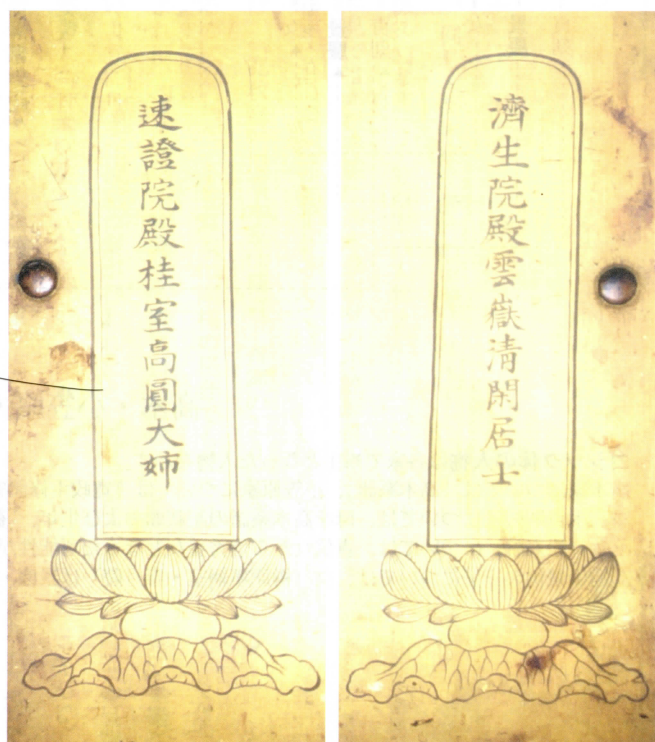 濟生院殿雲嶽清閑居士
速證院殿桂室高圓大姉